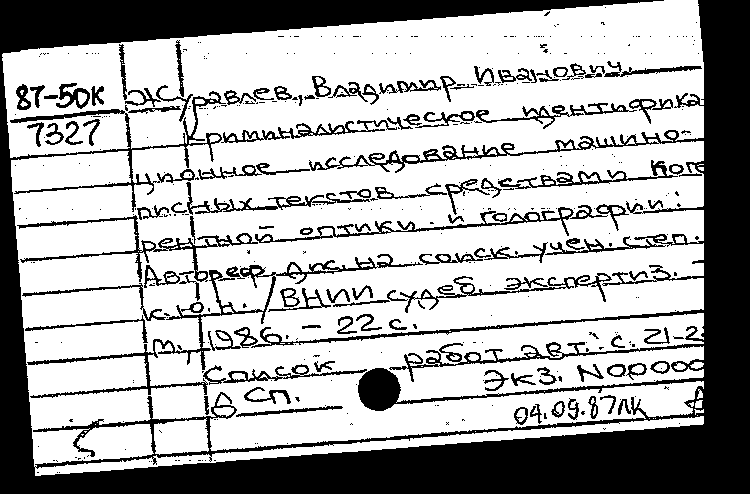 87-50К Журавлев, Владимир Иванович.
7327 Криминалистическое идентифика
ционное исследование машино-
писных текстов средствами коге
рентной оптики и голографии:
Автореф. дис. на соиск. учен. степ.
к.ю.н. / ВНИИ судеб. экспертиз. -
М., 1986. - 22 с.
Список работ авт.: с. 21-22
ДСП. Экз. N00000
04.09.87ЛК